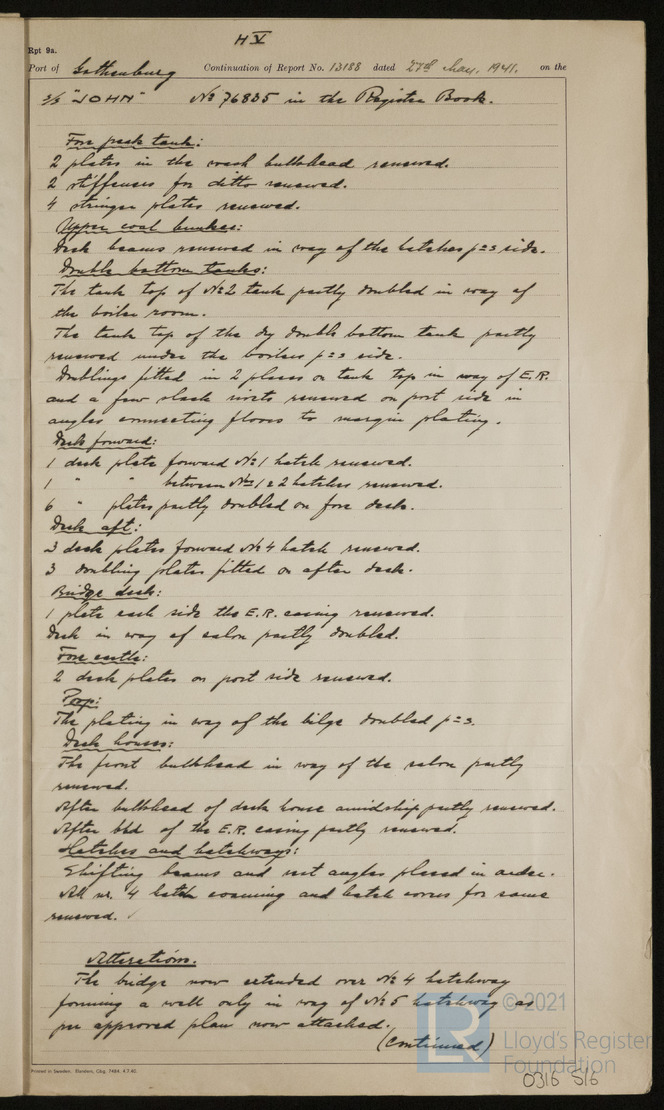 H V
Rpt 9a.
Port of Gothenburg Continuation of Report No. 13188 dated 27th May. 1941. on the
S/S "JOHN" No 76835 in the Register Book.
Fore peak tank:
2 plates in the wash bulkhead renewed.
2 stiffeners for ditto renewed.
4 stringer plates renewed.
Upper coal bunker:
Deck beams renewed in way of the hatches p=s side.
Double bottom tanks:
The tank top of No 2 tank partly doubled in way of
the boiler room.
The tank top of the dry double bottom tank partly
renewed under the boilers p=s side.
Doublings fitted in 2 places on tank top in way of E.R.
and a few slack rivets renewed on port side in
angles connecting floors to margin plating.
Deck forward:
1 deck plate forward No 1 hatch renewed.
1 " " between Nos 1 & 2 hatches renewed.
6 " plates partly doubled on fore deck.
Deck aft:
2 deck plates forward No 4 hatch renewed.
3 doubling plates fitted on after deck.
Bridge deck:
1 plate each side the E.R. casing renewed.
Deck in way of salon partly doubled.
Fore castle:
2 deck plates on port side renewed.
Poop:
The plating in way of the bilge doubled p=s.
Deck houses:
The front bulkhead in way of the salon partly
renewed.
After bulkhead of deck house amidship partly renewed.
After bhd of the E.R. casing partly renewed.
Hatches and hatchways:
Shifting beams and rest angles placed in order.
All nr. 4 hatch coaming and hatch covers for same
renewed.
Alterations.
The bridge now extended over No 4 hatchway
forming a well only in way of No 5 hatchway as
per approved plan now attached.
(Continued)
Printed in Sweden. Elanders, Gbg. 7484. 4.7.40.
LR
© 2021
Lloyd's Register
Foundation
0316 516